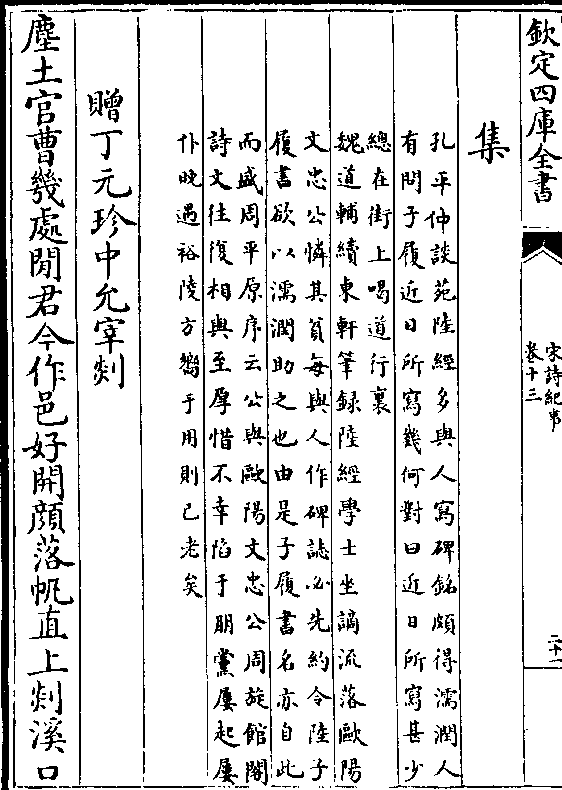 欽定四庫全書
宋詩紀事
卷十三
二十一
集
孔平仲談苑陸經多與人寫碑銘頗得濡潤人
有問子履近日所寫幾何對曰近日所寫甚少
總在街上喝道行裏
魏道輔續東軒筆録陸經學士坐謫流落歐陽
文忠公憐其貧每與人作碑誌必先約令陸子
履書欲以濡潤助之也由是子履書名亦自此
而盛周平原序云公與歐陽文忠公周旋館閣
詩文往復相與至厚惜不幸陷于朋黨屢起屢
仆晚遇裕陵方嚮于用則已老矣
贈丁元珍中允宰剡
塵土官曹幾處閒君今作邑好開顔落帆直上剡溪口